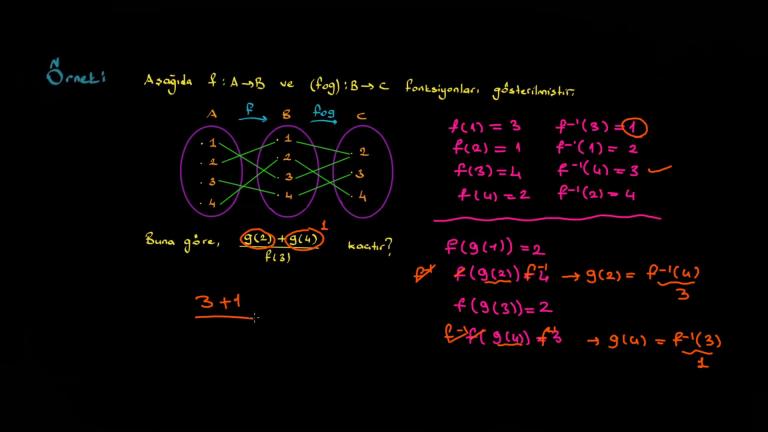 Örnek:
Aşağıda f : A→B ve (fog) : B→C fonksiyonları gösterilmiştir.
A f B fog C
.1 .1 .2
.2 .2 .3
.3 .3 .4
.4 .4
Buna göre, g(2) + g(4) / f(3) kaçtır?
1
3+1
f(1) = 3 f⁻¹(3) = 1
f(2) = 1 f⁻¹(1) = 2
f(3) = 4 f⁻¹(4) = 3
f(4) = 2 f⁻¹(2) = 4
f(g(1)) = 2
f⁻¹ f(g(2)) = f⁻¹ 4 → g(2) = f⁻¹(4)
3
f(g(3)) = 2
f⁻¹ f(g(4)) = f⁻¹ 3 → g(4) = f⁻¹(3)
1